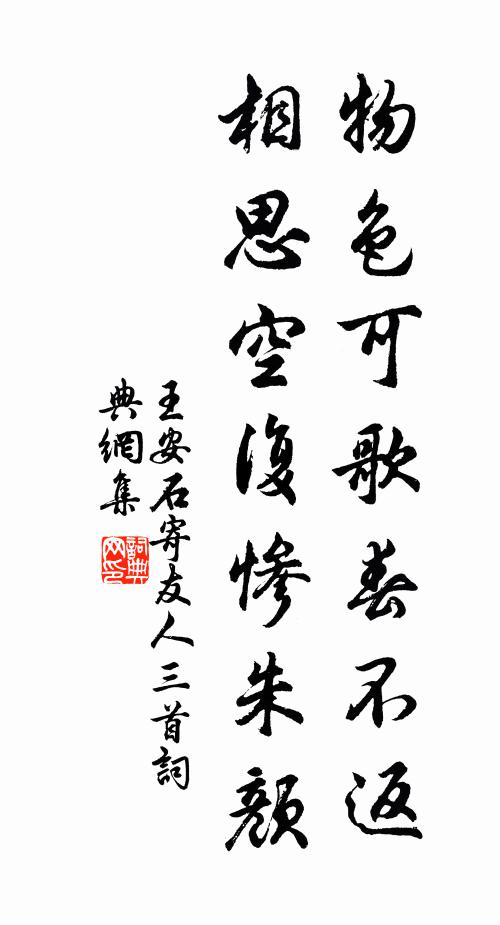 物色可歌春不返
相思空復慘朱顏
王安石寄友人三首詞
典網集
詞典
网印